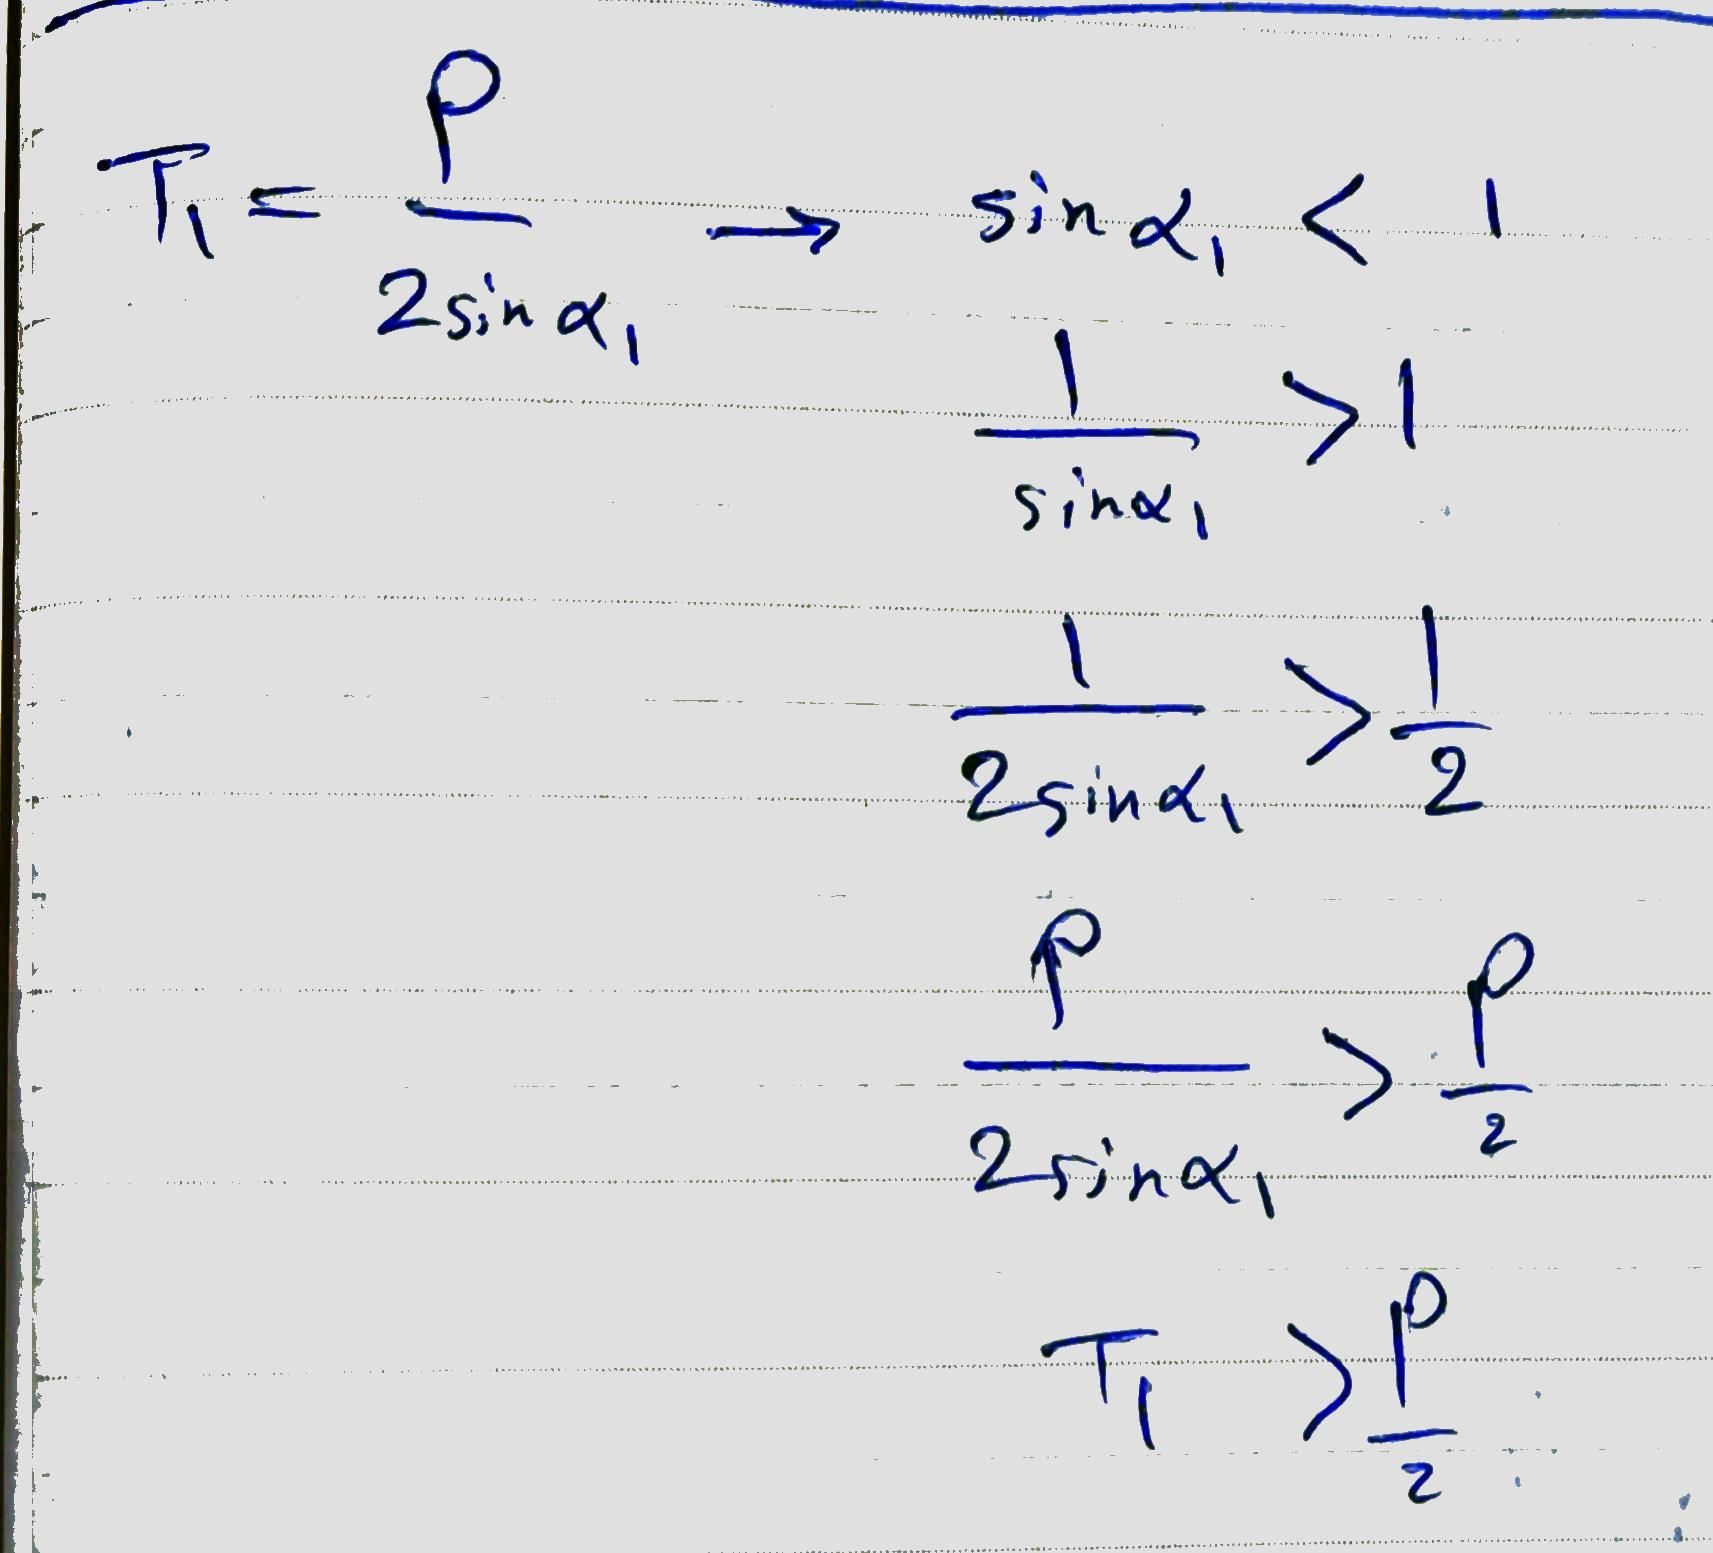 T₁ = P / 2 sin α₁ → sin α₁ < 1
1 / sin α₁ > 1
1 / 2 sin α₁ > 1 / 2
P / 2 sin α₁ > P / 2
T₁ > P / 2